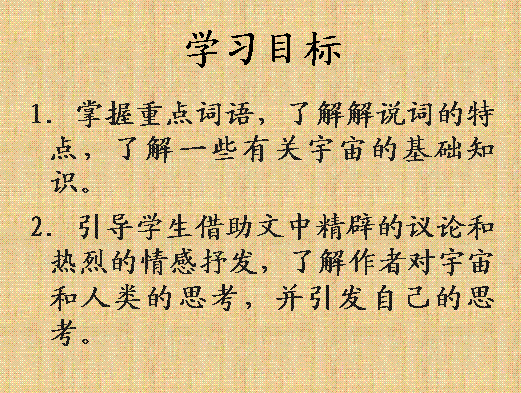 学习目标
1. 掌握重点词语，了解解说词的特
点，了解一些有关宇宙的基础知
识。
2. 引导学生借助文中精辟的议论和
热烈的情感抒发，了解作者对宇宙
和人类的思考，并引发自己的思
考。